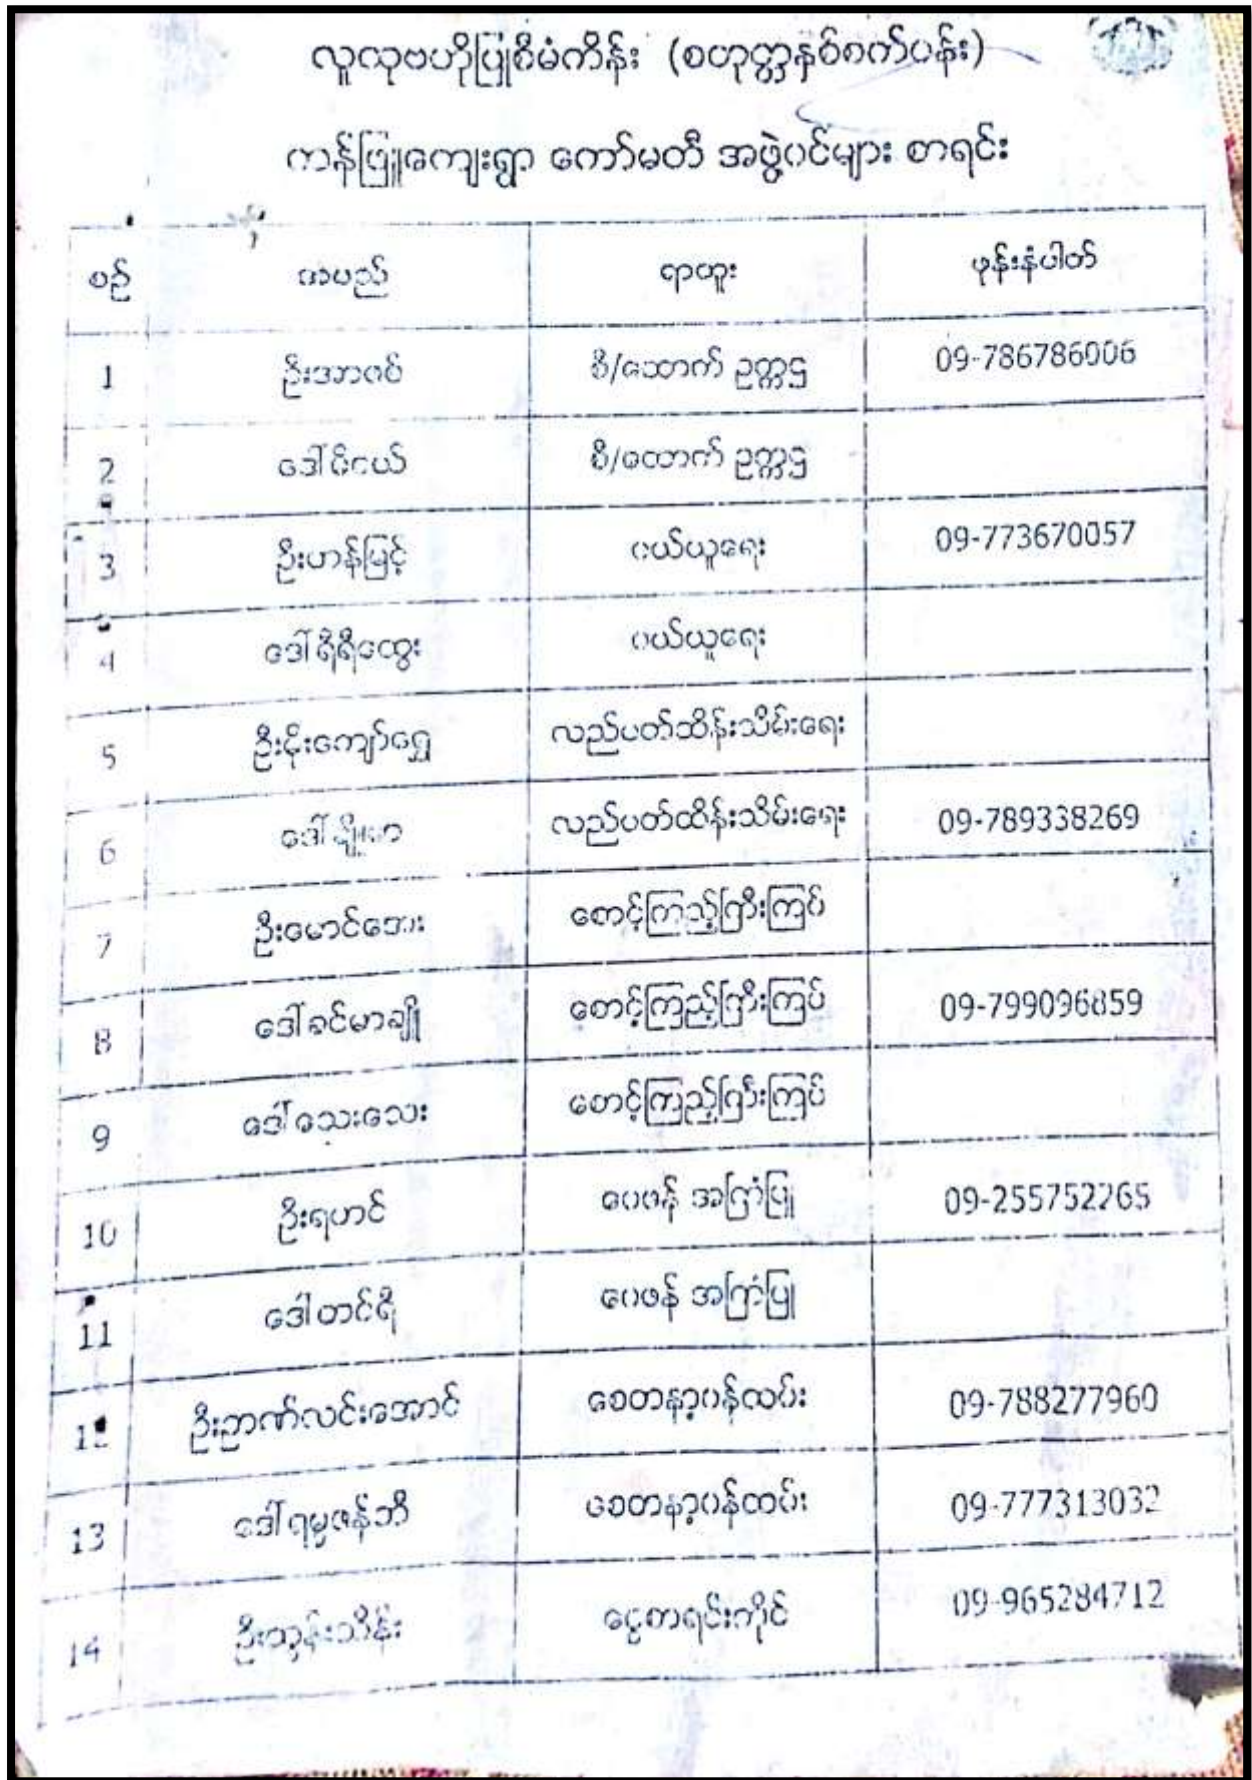 လူလုဗဟိုပြုစီမံကိန်း (စတုတ္ထနှစ်စက်ဝန်း)
ကန်ဖြူကျေးရွာ ကော်မတီ အဖွဲ့ဝင်များ စာရင်း
စဉ် အမည် ရာထူး ဖုန်းနံပါတ်
1 ဦးအာဇစ် စီ/ထောက် ဥက္ကဋ္ဌ 09-786786006
2 ဒေါ်မိငယ် စီ/ထောက် ဥက္ကဋ္ဌ
3 ဦးဟန်မြင့် ဝယ်ယူရေး 09-773670057
4 ဒေါ်ရီရီထွေး ဝယ်ယူရေး
5 ဦးမိုးကျော်ရွှေ လည်ပတ်ထိန်းသိမ်းရေး
6 ဒေါ် လည်ပတ်ထိန်းသိမ်းရေး 09-789338269
7 ဦးမောင်အေး စောင့်ကြည့်ကြီးကြပ်
8 ဒေါ်ခင်မာချို စောင့်ကြည့်ကြီးကြပ် 09-799096859
9 ဒေါ်သေးသေး စောင့်ကြည့်ကြီးကြပ်
10 ဦးရဟင် ဝေဖန် အကြံပြု 09-255752265
11 ဒေါ်တင်ရီ ဝေဖန် အကြံပြု
12 ဦးဉာဏ်လင်းအောင် စေတနာ့ဝန်ထမ်း 09-788277960
13 ဒေါ်ရမ္မဇန်ဘီ စေတနာ့ဝန်ထမ်း 09-777313032
14 ဦးထွန်းသိန်း ငွေစာရင်းကိုင် 09-965284712